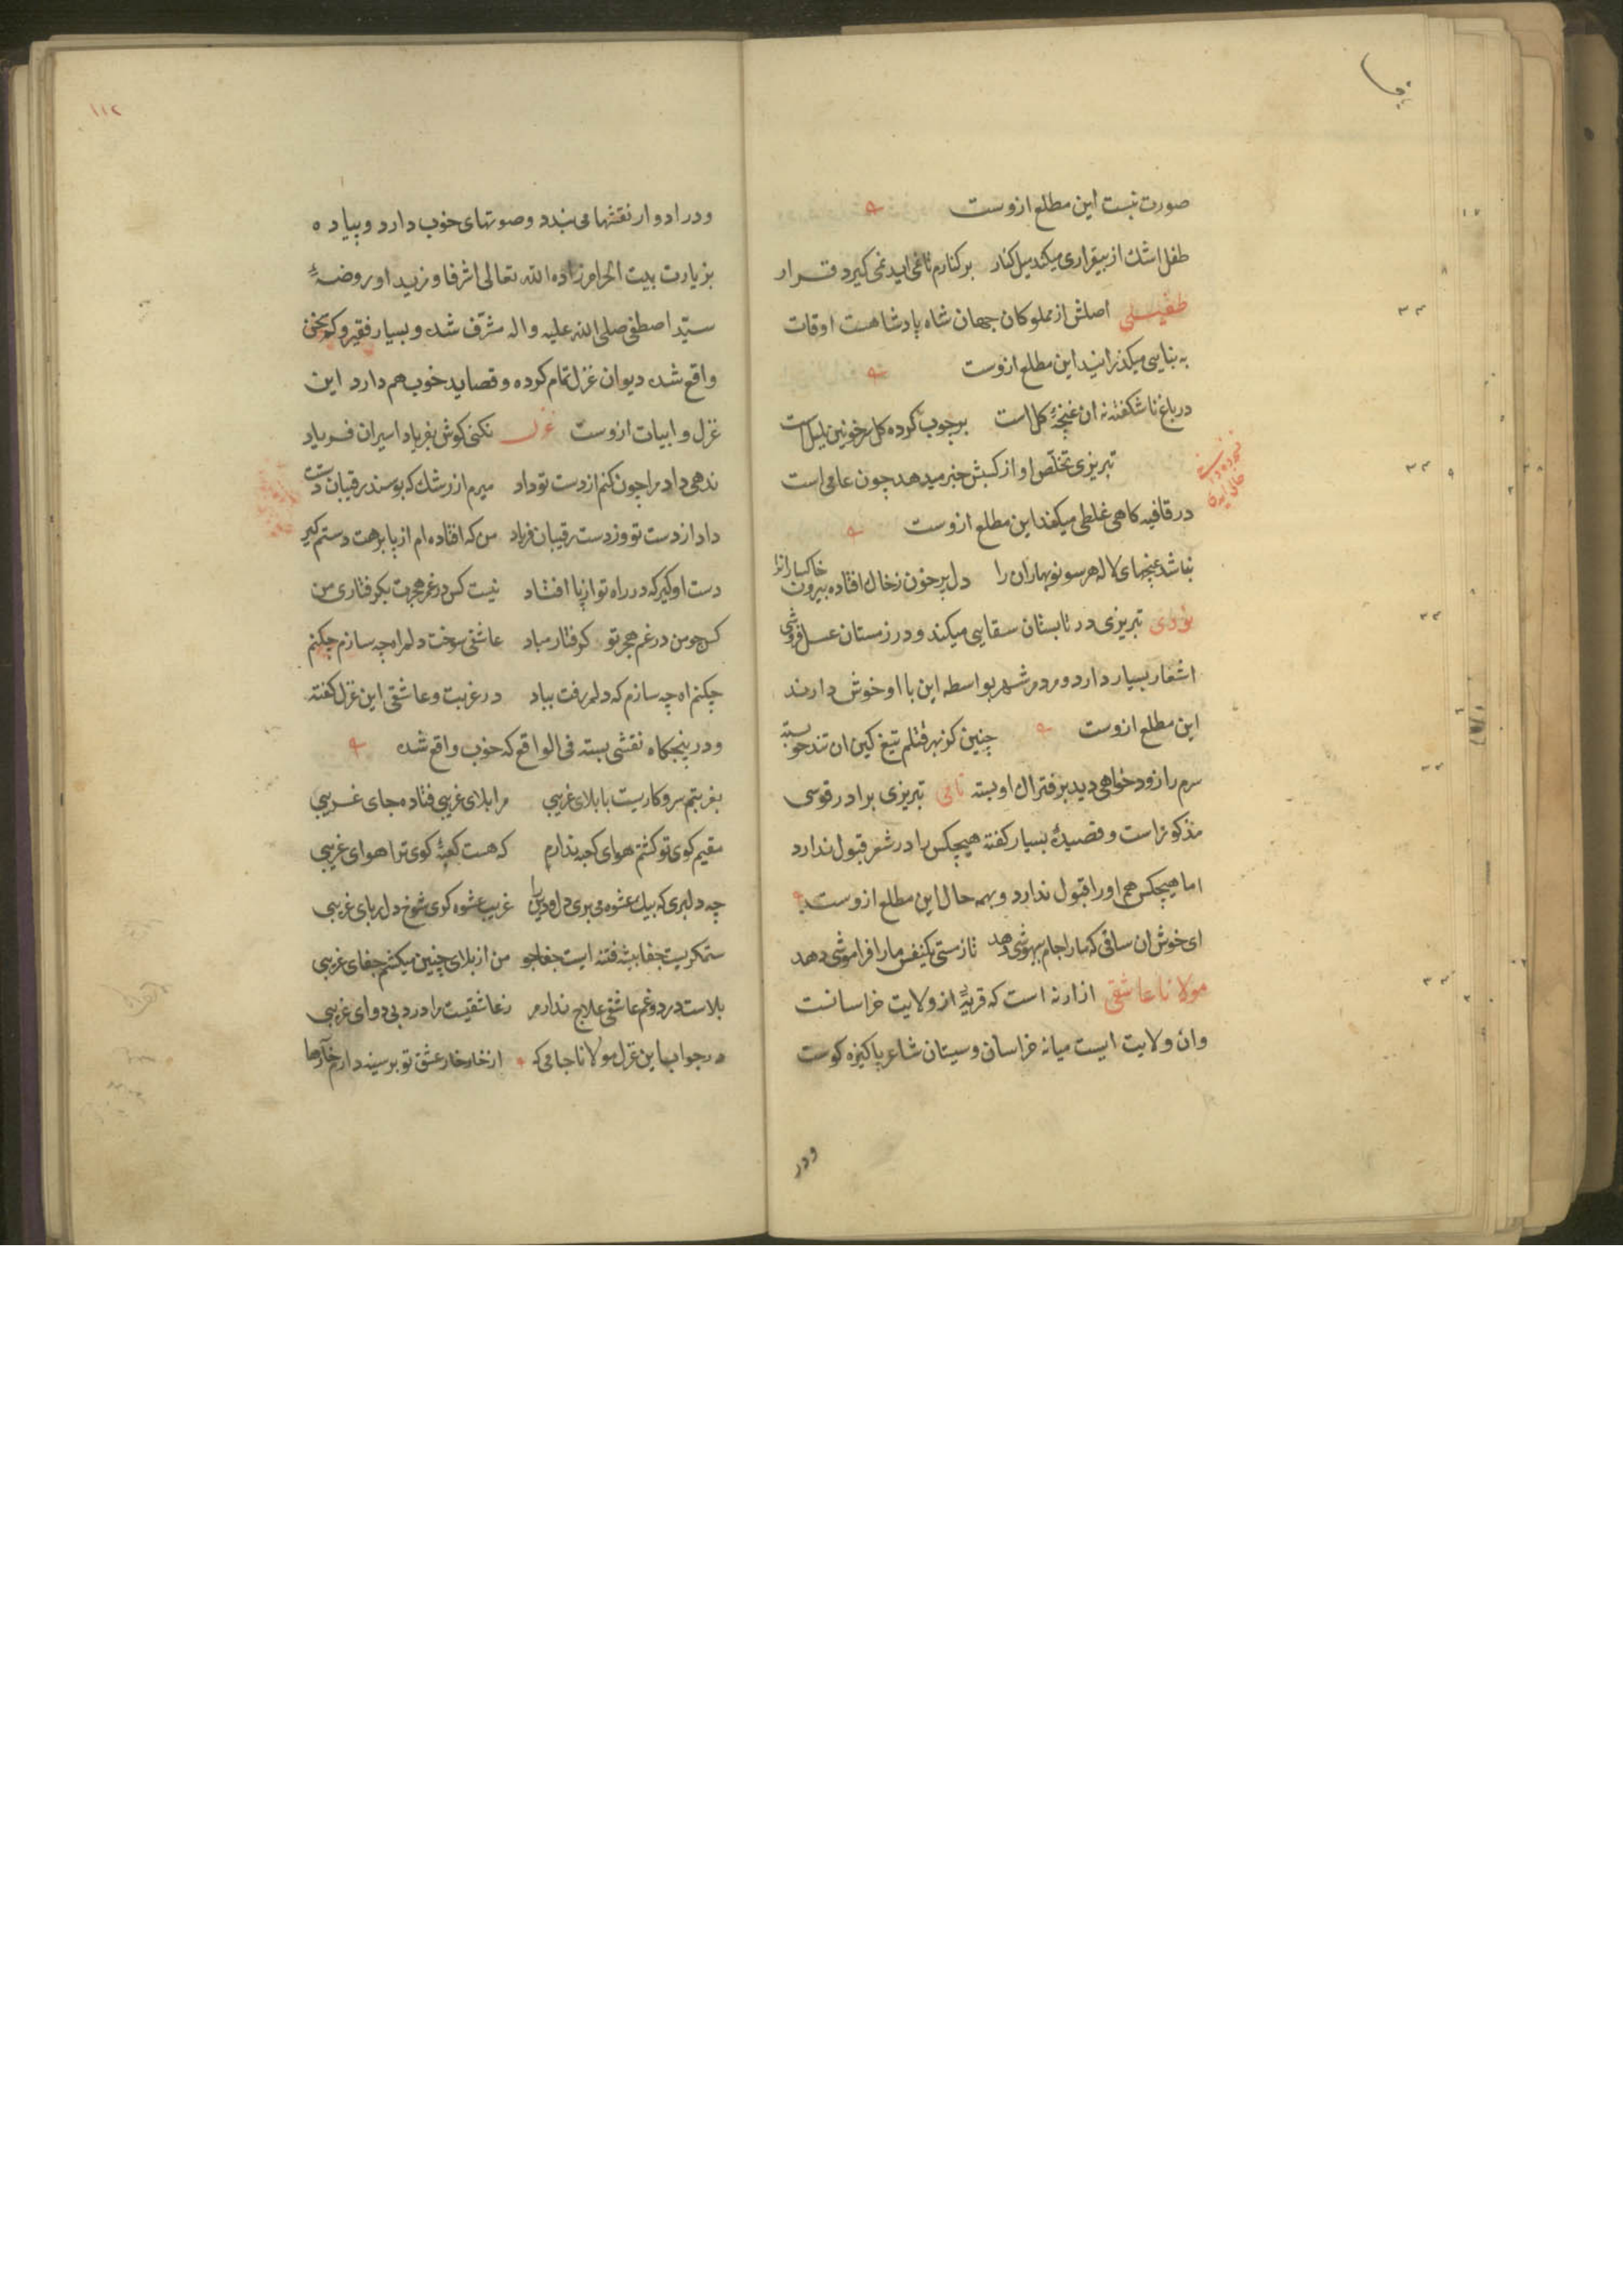 صورت نیست این مطلع ازوست
طفل اشک از بیقراری میکند میل کنار برکنارم تا نمی اید نمی کیرد قرار
طفیلی اصلش از مملوکان جهان شاه پادشاهست اوقات
به بنایی میکذرانید این مطلع ازوست
در باغ ناشکفته نه ان غنچهٔ کل است برچوب کرده کل سر خونین بلبل است
تبریزی تخلص او از کسبش خبر میدهد چون عامی است
در قافیه کاهی غلطی میکند این مطلع ازوست
نباشد غنچهای لاله هر سو نوبهاران را دل پر خون ز خاک افتاده بیرون خاکساران را
تبریزی در تابستان سقایی میکند و در زمستان عسل فروشی
اشعار بسیار دارد و مردم شهر بواسطه این با او خوش دارند
این مطلع ازوست چنین کز بهر قتلم تیغ کین ان تندخو بسته
سرم را زود خواهی دید بر فتراک او بسته نامی تبریزی برادر قوسی
مذکور است و قصیدهٔ بسیار کفته هیچکس را در شعر قبول ندارد
اما هیچکس هم او را قبول ندارد و بهمه حال این مطلع ازوست
ای خوش ان ساقی که ما را جام بیهوشی دهد تا زمستی یکنفس ما را فراموشی دهد
مولانا عاشقی از ارنه است که قریهٔ از ولایت خراسانست
وان ولایت ایست میانه خراسان و سیستان شاعر پاکیزه کوست
ودر
۱۱۲
ودر ادوار نقشها می بندد و صوتهای خوب دارد و پیاده
بزیارت بیت الحرام زاده الله تعالی اشرفا و روضهٔ
سید اصطفی صلی الله علیه واله مشرف شده و بسیار فقیر و کم سخن
واقع شده دیوان غزل تمام کرده و قصاید خوب هم دارد این
غزل و ابیات ازوست غزل نکنی کوش بفریاد اسیران فریاد
ندهی داد مرا چون کنم از دست تو داد میرم از رشک که بوسند رقیبان دستت
داد از دست تو وز دست رقیبان فریاد من که افتاده ام از پا برهت دستم کیر
دست او کیر که در راه تو از پا افتاد نیست کس در غم هجرت بکرفتاری من
کس چو من در غم هجر تو کرفتار مباد عاشقی سوخت دلم اه چه سازم چکنم
چکنم اه چه سازم که دلم رفت بباد در غربت و عاشقی این غزل کفته
و در پنجکاه نقشی بسته فی الواقع که خوب واقع شده
بغربتم سر و کاریست با بلای غریبی مرا بلای غریبی فتاده جای غریبی
مقیم کوی تو کشتم هوای کعبه ندارم که هست کعبهٔ کوی ترا هوای غریبی
چه دلبری که بیک عشوه می بری دل و دین را غریب عشوه کوی شوخ دلربای غریبی
ستمکریست جفا پیشه فتنه ایست جفاجو من از بلای چنین میکشم جفای غریبی
بلاست درد و غم عاشقی علاج ندارم ز عاشقیست مرا درد بی دوای غریبی
در جواب این غزل مولانا جامی که از خار خار عشق تو بر سینه دارم خارها